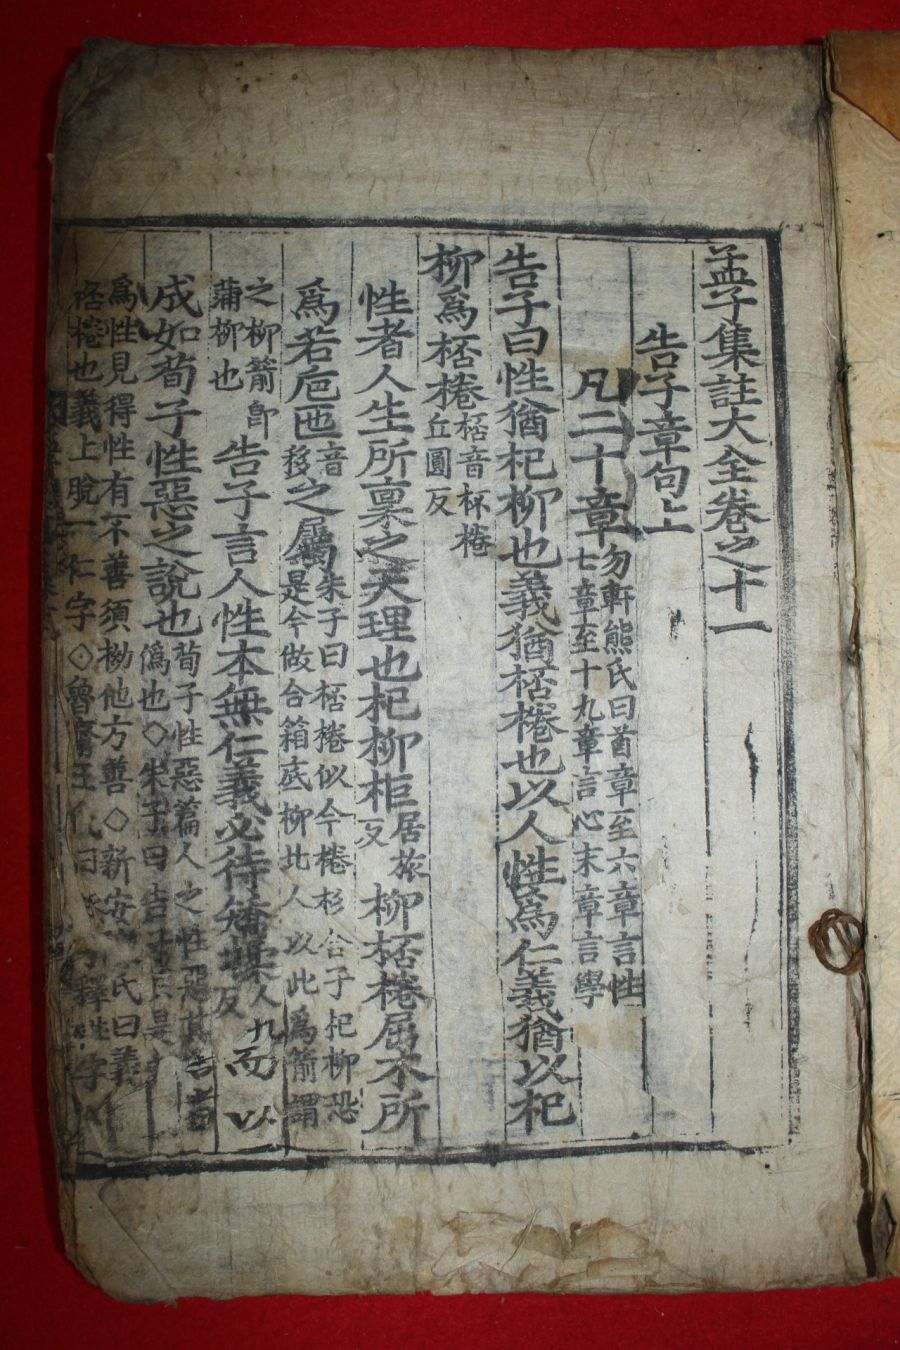 孟子集註大全卷之十一
告子章句上
凡二十章勿軒熊氏曰首章至六章言性
七章至十九章言心末章言學
告子曰性猶杞柳也義猶桮棬也以人性爲仁義猶以杞
柳爲桮棬桮音杯棬
丘圓反
性者人生所稟之天理也杞柳柜居旅
反柳桮棬屈木所
爲若巵匜音
移之屬朱子曰桮棬似今棬杉合子杞柳恐
是今做合箱底柳北人以此爲箭謂
之柳箭卽
蒲柳也告子言人性本無仁義必待矯揉人九
反而以
成如荀子性惡之說也荀子性惡篇人之性惡其善者
僞也◇朱子曰告子只是
爲性見得性有不善須拗他方善◇新安氏曰義
桮棬也義上脫一仁字◇魯齋王氏曰